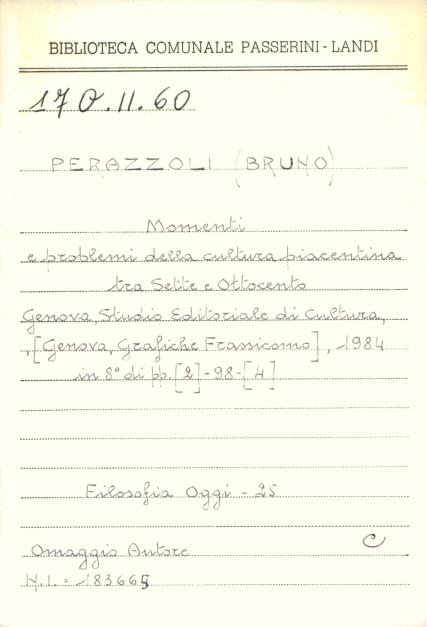 BIBLIOTECA COMUNALE PASSERINI - LANDI
170.11.60
PERAZZOLI (BRUNO)
Momenti
e problemi della cultura piacentina
tra Sette e Ottocento
Genova, Studio Editoriale di Cultura,
, [Genova, Grafiche Frassicomo], 1984
in 8° di pp. [2]-98-[4]
Filosofia Oggi - 25
C
Omaggio Autore
N.I. = 183665